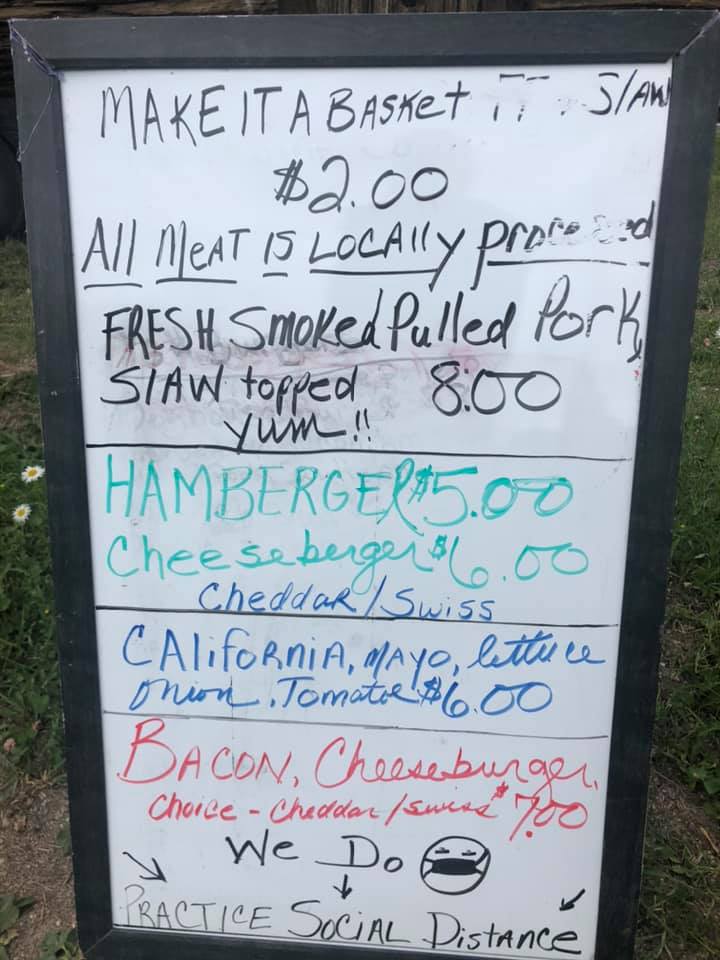 MAKE IT A BASKet SlAW
$2.00
All MeAT IS LOCAlly processed
FRESH Smoked Pulled Pork,
SlAW topped 8.00
yum!!
HAMBERGER $5.00
Cheeseberger $6.00
CheddaR/Swiss
CAlifoRNiA, MAYO, lettuce
onion, Tomatoe $6.00
BACON, Cheeseburger,
Choice - Cheddar/swiss $7.00
We Do
PRACTICE SOCiAL DistANCe